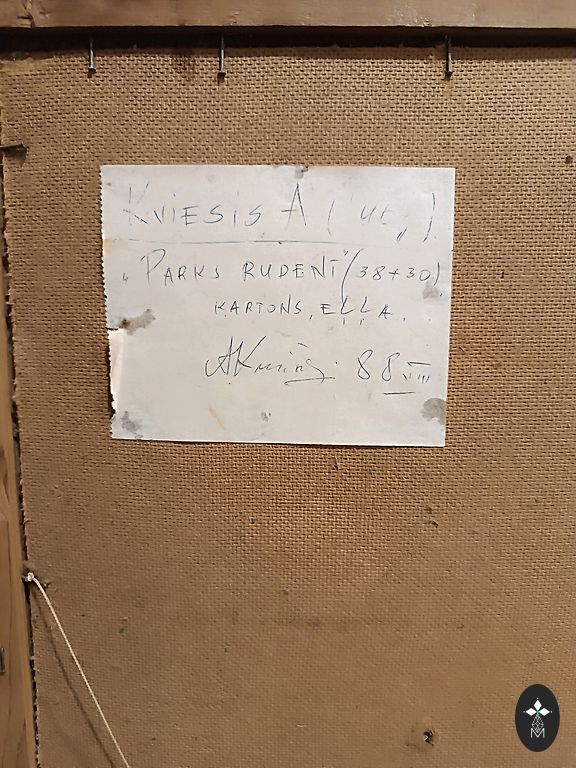 KVIESIS A
„PARKS RUDENĪ" (38+30)
KARTONS, EĻĻA.
88 VIII
M